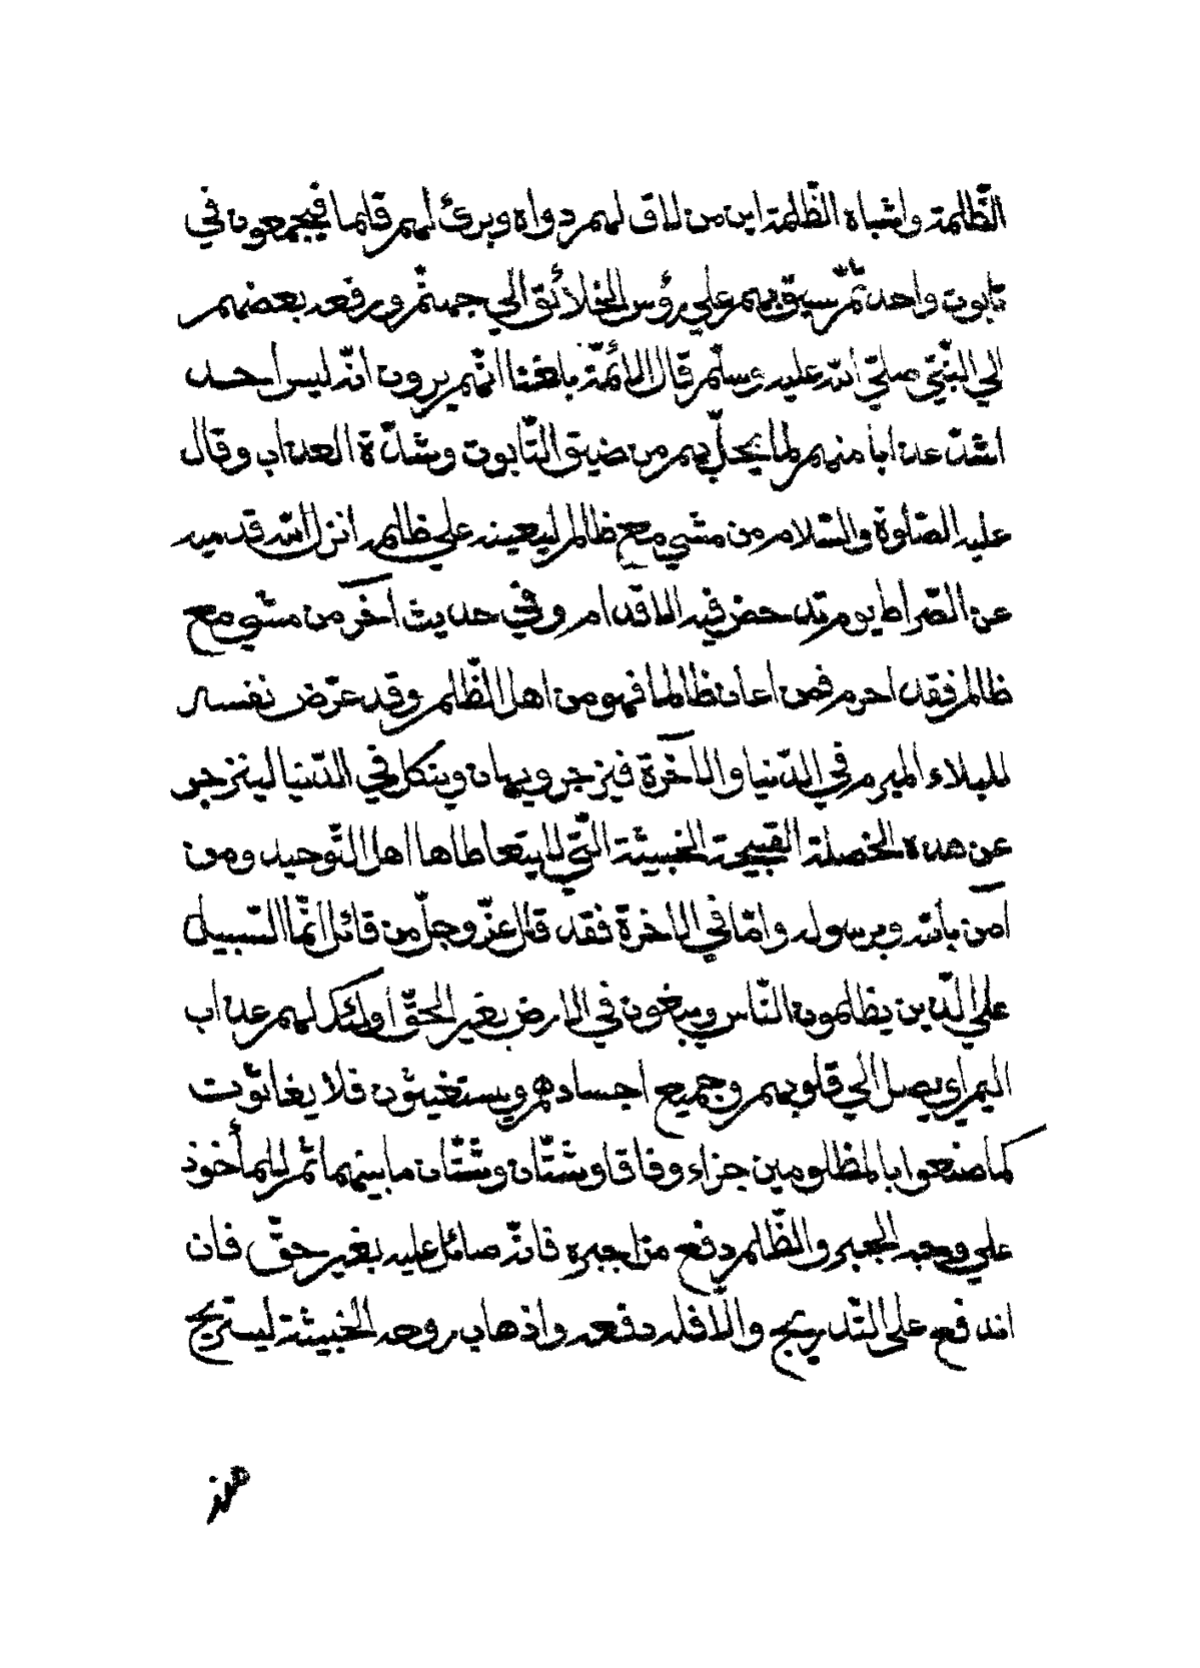 الظّالمة واشباه الظّالمة اين من لاق لهم دواه وبرئ لهم قلما فيجمعون في
تابوت واحد ثمّ سيق بهم علي رؤس الخلائق الي جهنّم ورفعه بعضهم
الي النّبيّ صلّي الله عليه وسلّم قال الائمّة بلغنا انّهم يرون انّه ليس احد
اشدّ عذابا منهم لما يحلّ بهم من ضيق التّابوت وشدّة العذاب وقال
عليه الصّلوة والسّلام من مشي مع ظالم ليعينه علي ظلمه انزل الله قدميه
عن الصّراط يوم تدحض فيه الاقدام وفي حديث آخر من مشي مع
ظالم فقد اجرم فمن اعان ظالما فهو من اهل الظّلم وقد عرّض نفسه
للبلاء المبرم في الدّنيا والآخرة فيزجر ويهان وينكل في الدّنيا لينزجر
عن هذه الخصلة القبيحة الخبيثة الّتي لا يتعاطاها اهل التّوحيد ومن
آمن بالله وبرسوله وامّا في الاخرة فقد قال عزّ وجلّ من قائل انّما السّبيل
علي الّذين يظلمون النّاس ويبغون في الارض بغير الحقّ أولئك لهم عذاب
اليم اي يصل الي قلوبهم وجميع اجسادهم ويستغيثون فلا يغاثون
كما صنعوا بالمظلومين جزاء وفاقا وشتّان وشتّان ما بينهما ثمّ للمأخوذ
علي وجه الجبر والظّلم دفع من اجبره فانّه صائل عليه بغير حقّ فان
اندفع علي التّدريج والّا فله دفعه واذهاب روحه الخبيثة ليستريح